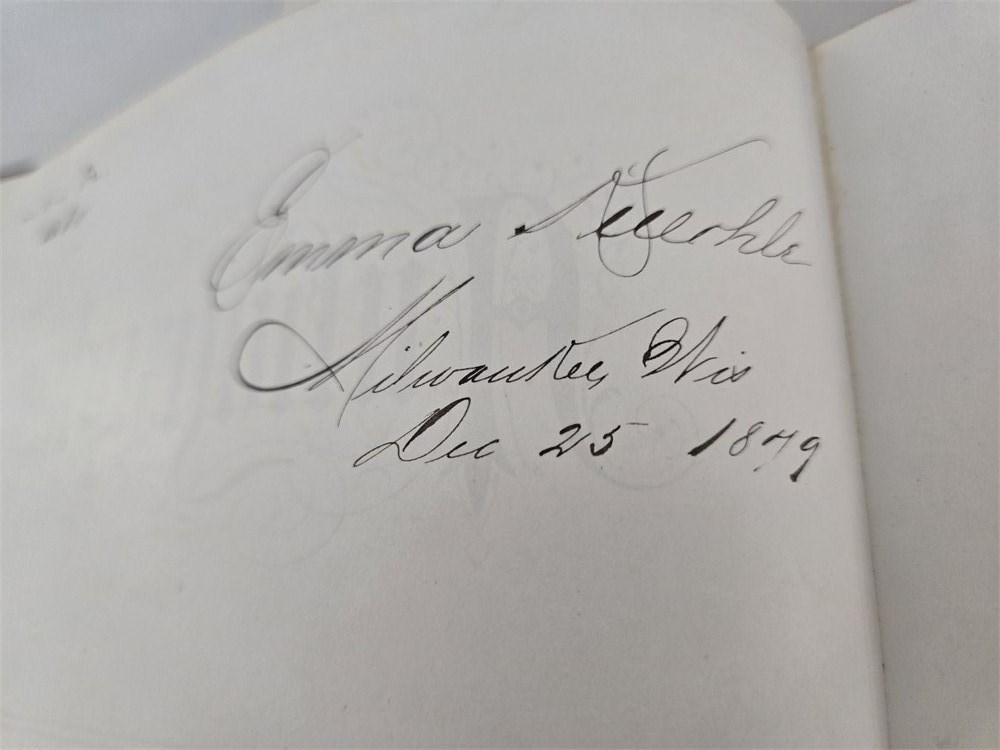 Emma
Milwaukee, Wis
Dec 25 1879